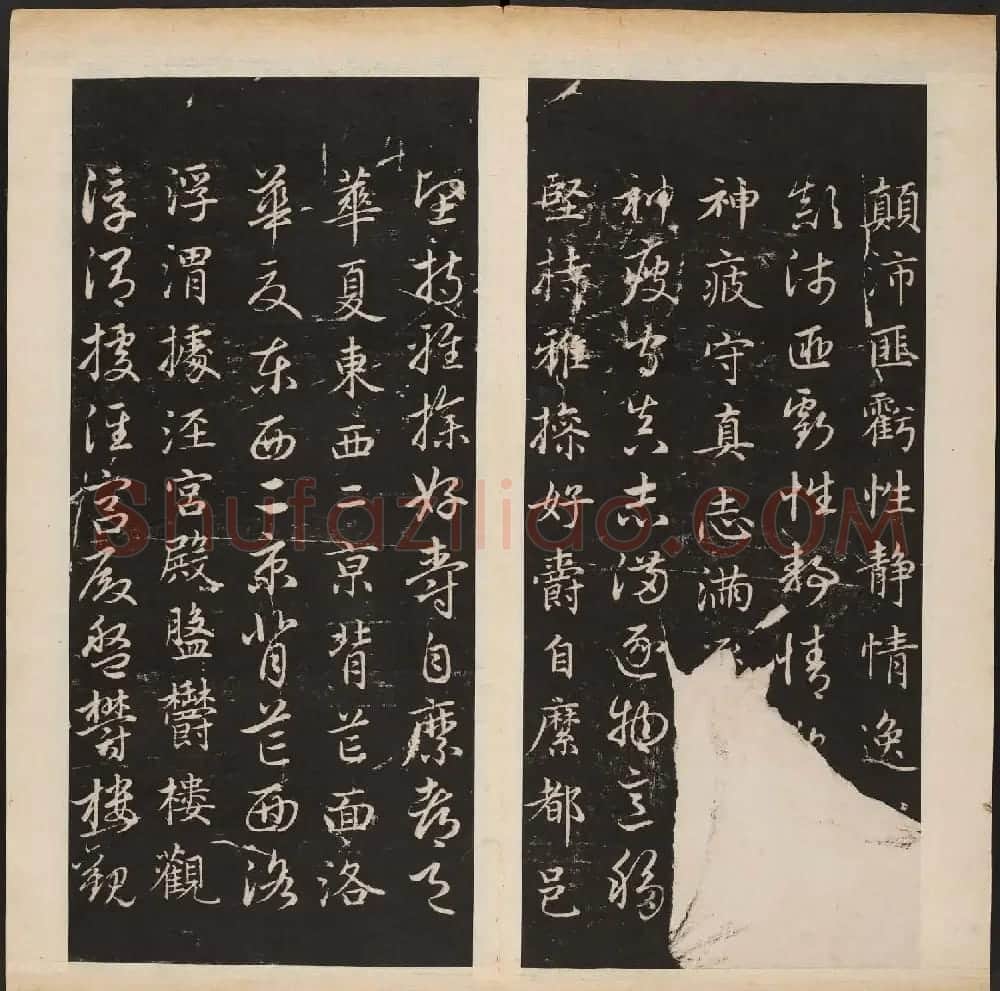 顛沛匪虧性静情逸
顛沛匪虧性静情
神疲守真志滿
神疲守真志滿逐物意移
堅持雅操好爵自縻都邑
堅持雅操好爵自縻都邑
華夏東西二京背芒面洛
華夏東西二京背芒面洛
浮渭據涇宮殿盤欝樓觀
浮渭據涇宮殿盤欝樓觀
Shufaziliao.COM